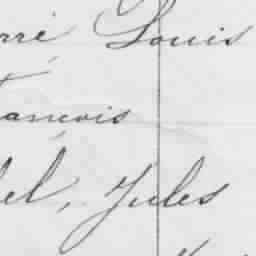 rré Louis
ancois
el, Jules